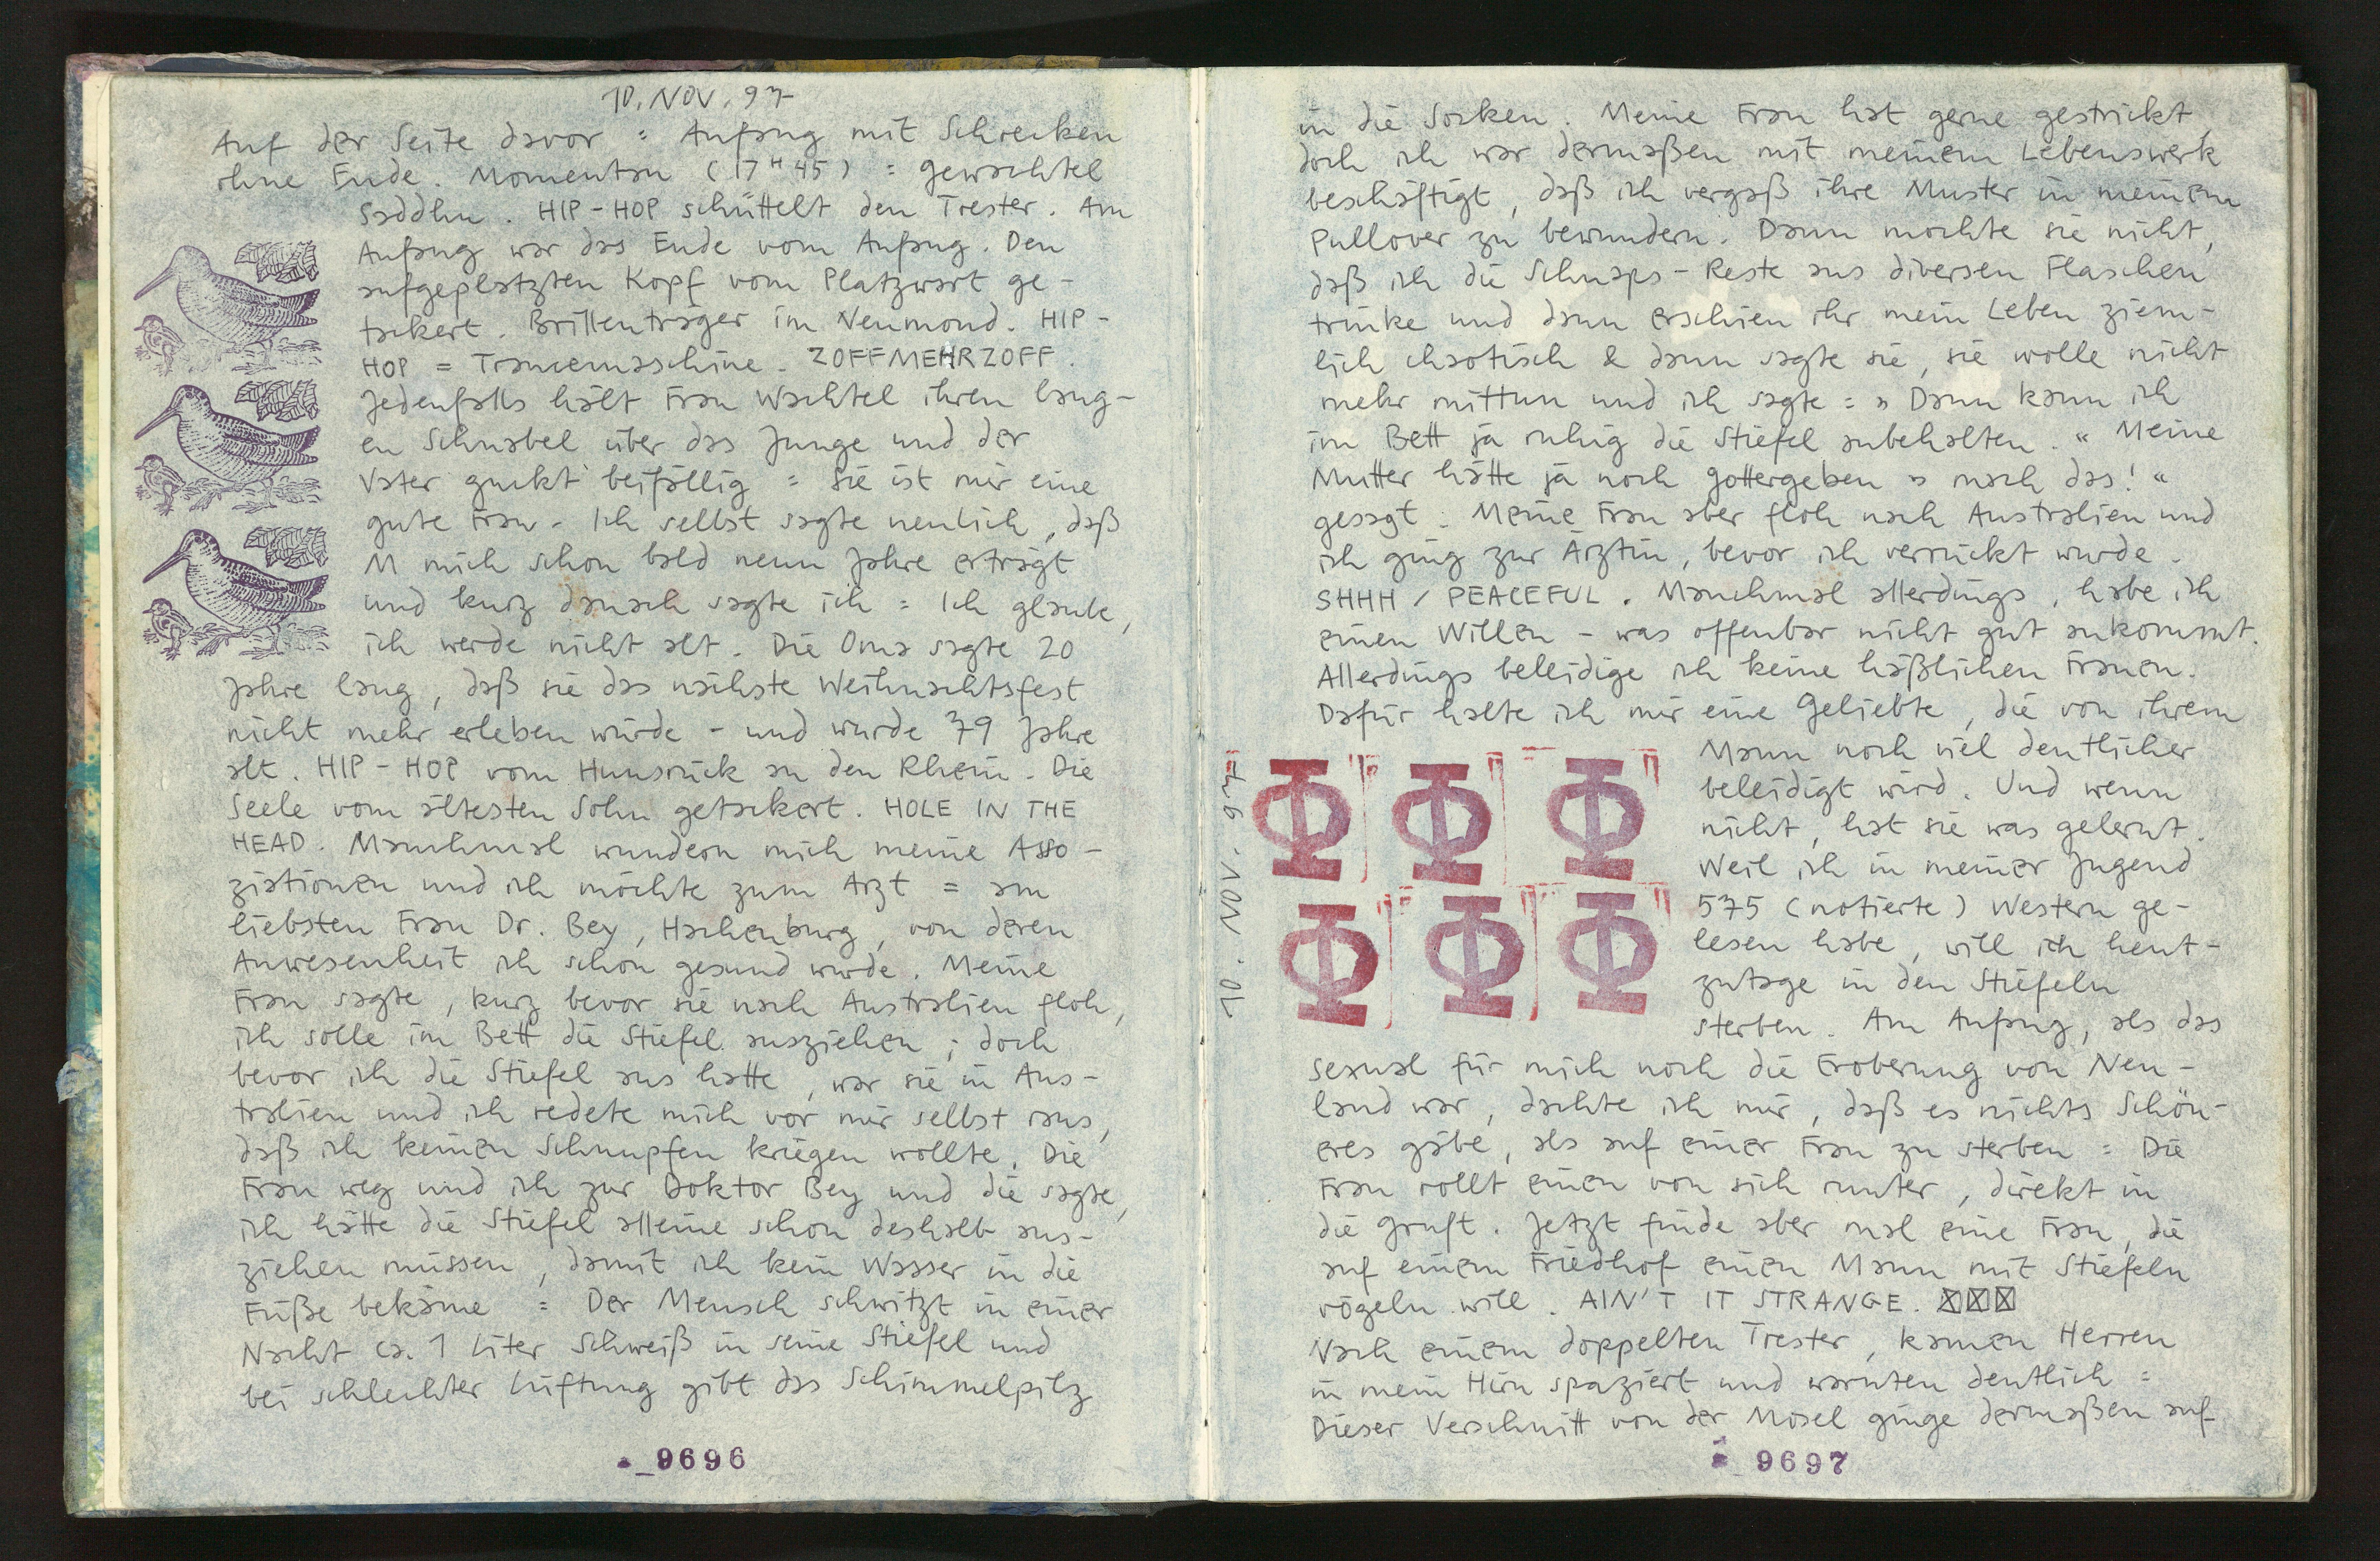 10. NOV. 97
Auf der Seite davor = Anfang mit Schrecken
ohne Ende. Momentan (17H45) = gewachtel
Saddhu. HIP-HOP schüttelt den Trester. Am
Anfang war das Ende vom Anfang. Den
aufgeplatzten Kopf vom Platzwart ge-
tackert. Brillenträger im Neumond. HIP-
HOP = Trancemaschine. ZOFFMEHRZOFF.
Jedenfalls hält Frau Wachtel ihren lang-
en Schnabel über das Junge und der
Vater guckt beifällig = Sie ist mir eine
gute Frau. Ich selbst sagte neulich, daß
M mich schon bald neun Jahre erträgt
und kurz danach sagte ich = Ich glaube,
ich werde nicht alt. Die Oma sagte 20
Jahre lang, daß sie das nächste Weihnachtsfest
nicht mehr erleben würde - und wurde 79 Jahre
alt. HIP-HOP vom Hunsrück an den Rhein. Die
Seele vom ältesten Sohn getackert. HOLE IN THE
HEAD. Manchmal wundern mich meine Asso-
ziationen und ich möchte zum Arzt = am
liebsten Frau Dr. Bey, Hachenburg, von deren
Anwesenheit ich schon gesund wurde. Meine
Frau sagte, kurz bevor sie nach Australien floh,
ich solle im Bett die Stiefel ausziehen; doch
bevor ich die Stiefel aus hatte, war sie in Aus-
tralien und ich redete mich vor mir selbst raus,
daß ich keinen Schnupfen kriegen wollte. Die
Frau weg und ich zur Doktor Bey und die sagte,
ich hätte die Stiefel alleine schon deshalb aus-
ziehen müssen, damit ich kein Wasser in die
Füße bekäme = Der Mensch schwitzt in einer
Nacht ca. 1 Liter Schweiß in seine Stiefel und
bei schlechter Lüftung gibt das Schimmelpilz
9696
in die Socken. Meine Frau hat gerne gestrickt,
doch ich war dermaßen mit meinem Lebenswerk
beschäftigt, daß ich vergaß ihre Muster in meinem
Pullover zu bewundern. Dann mochte sie nicht,
daß ich die Schnaps-Reste aus diversen Flaschen
trinke und dann erschien ihr mein Leben ziem-
lich chaotisch & dann sagte sie, sie wolle nicht
mehr mittun und ich sagte = » Dann kann ich
im Bett ja ruhig die Stiefel anbehalten. « Meine
Mutter hätte ja noch gottergeben » mach das! «
gesagt. Meine Frau aber floh nach Australien und
ich ging zur Ärztin, bevor ich verrückt wurde.
SHHH / PEACEFUL. Manchmal allerdings, habe ich
einen Willen - was offenbar nicht gut ankommt.
Allerdings beleidige ich keine häßlichen Frauen.
Dafür halte ich mir eine Geliebte, die von ihrem
Mann noch viel deutlicher
beleidigt wird. Und wenn
nicht, hat sie was gelernt.
Weil ich in meiner Jugend
575 (notierte) Western ge-
lesen habe, will ich heut-
zutage in den Stiefeln
sterben. Am Anfang, als das
10. NOV. 97
Sexual für mich noch die Eroberung von Neu-
land war, dachte ich mir, daß es nichts Schön-
eres gäbe, als auf einer Frau zu sterben = Die
Frau rollt einen von sich runter, direkt in
die Gruft. Jetzt finde aber mal eine Frau, die
auf einem Friedhof einen Mann mit Stiefeln
vögeln will. AIN'T IT STRANGE. ☒☒☒
Nach einem doppelten Trester, kamen Herren
in mein Hirn spaziert und warnten deutlich =
Dieser Verschnitt von der Mosel ginge dermaßen auf
9697